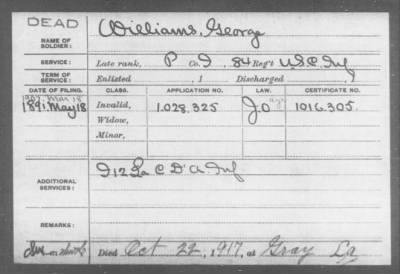 DEAD
NAME OF SOLDIER: Williams, George
SERVICE: Late rank, P Co. I, 84 Reg't U.S.C. Inf
TERM OF SERVICE: Enlisted , 1 Discharged , 1
DATE OF FILING. CLASS. APPLICATION NO. LAW. CERTIFICATE NO.
1907, Mar 18
1891, May 18 Invalid, 1.028.325 J.O 1016.305.
Widow,
Minor,
ADDITIONAL SERVICES: I 12 La C D'A Inf
REMARKS:
Died Oct 22, 1917, at Gray La